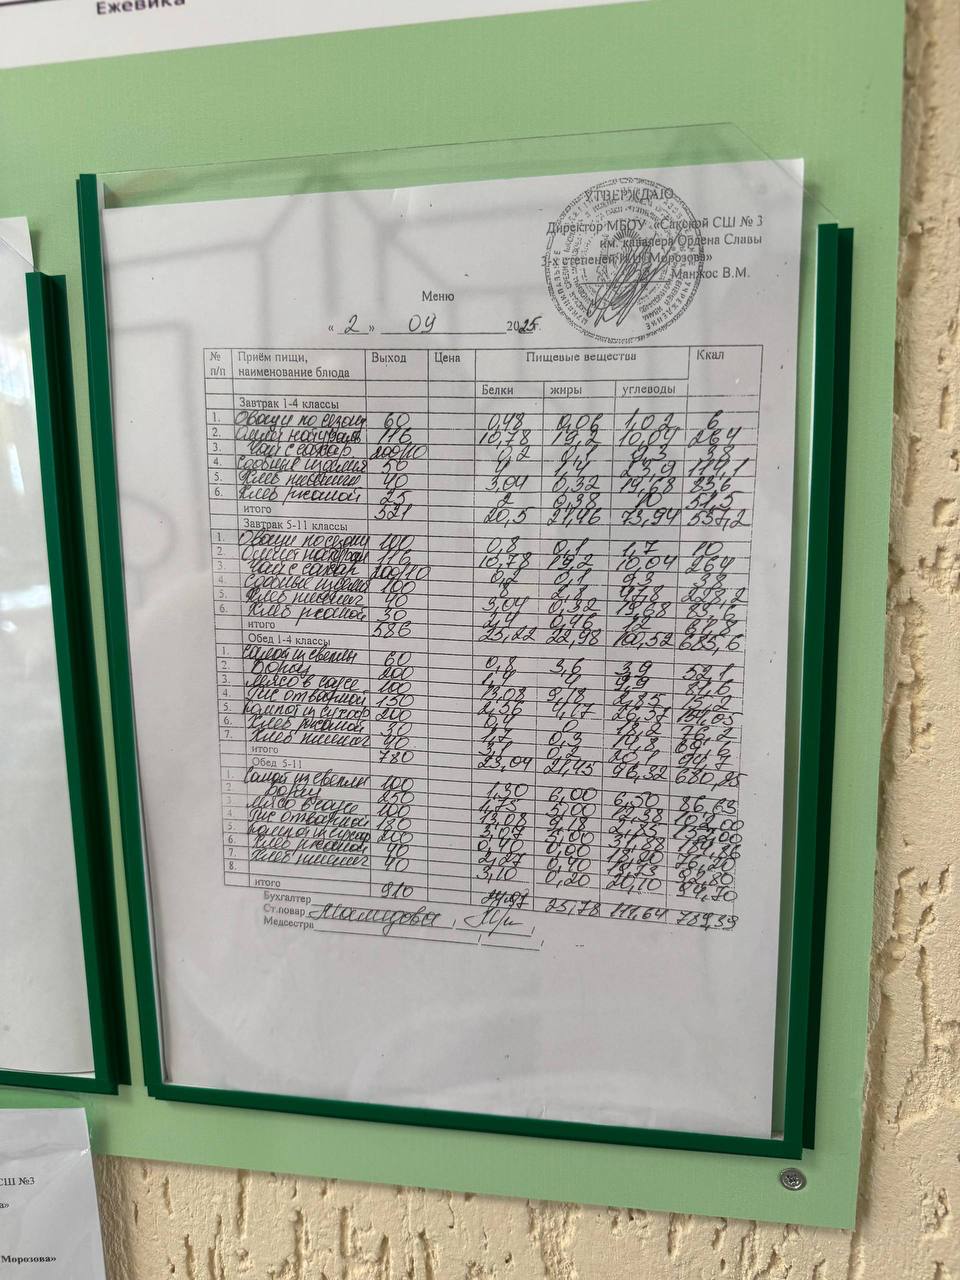 Ежевика
УТВЕРЖДАЮ
Директор МБОУ «Сакской СШ № 3
им. кавалера Ордена Славы
3-х степеней И.И. Морозова»
Манжос В.М.
Меню
« 2 » 09 2025г.
№ п/п Приём пищи, наименование блюда Выход Цена Пищевые вещества Ккал
Белки жиры углеводы
Завтрак 1-4 классы
1. Овощи по сезону 60 0,48 0,06 1,02 6
2. Омлет натурал 116 10,78 19,2 10,04 264
3. Чай с сахар 200/10 0,2 0,1 9,3 38
4. Сдобные изделия 50 4 1,4 23,9 114,1
5. Хлеб пшенич 40 3,04 0,32 19,68
6. Хлеб ржаной 25 2 0,38 10
итого 521 20,5 21,46 73,94 557,2
Завтрак 5-11 классы
1. Овощи по сезону 100 0,8 0,1 1,7 10
2. Омлет натурал 116 10,78 19,2 10,04 264
3. Чай с сахар 200/10 0,2 0,1 9,3 38
4. Сдобные издели 100 8 2,8 47,8 228,2
5. Хлеб пшенич 40 3,04 0,32 19,68
6. Хлеб ржаной 30 2,4 0,46 12
итого 586 25,22 22,98 100,52 685,6
Обед 1-4 классы
1. Салат из свеклы 60 0,8 3,6 3,9 52,1
2. Борщ 200 1,4
3. Мясо в соусе 100 13,08 9,18 2,85
4. Рис отварной 150 2,56 4,17
5. Компот из сухоф 200 0,4 0 76,2
6. Хлеб ржаной 30 1,7 0,3 14,8
7. Хлеб пшенич 40 3,1 0,2 20,1 94,7
итого 780 23,04 21,45 96,32 680,25
Обед 5-11
1. Салат из свеклы 100 1,30 6,00 6,50 86,83
2 Борщ 250 1,75 5,00
3 Мясо в соусе 100 13,08 9,18 2,85
4. Рис отварной 180 3,07 5,00 31,88
5. Компот из сухоф 200 0,40 0,00 76,20
6. Хлеб ржаной 40 2,27 0,40 19,73
7. Хлеб пшенич 40 3,10 0,20 20,10 94,70
8.
итого 910 23,78 111,64 789,39
Бухгалтер
Ст.повар
Медсестра
СШ №3
а»
Морозова»